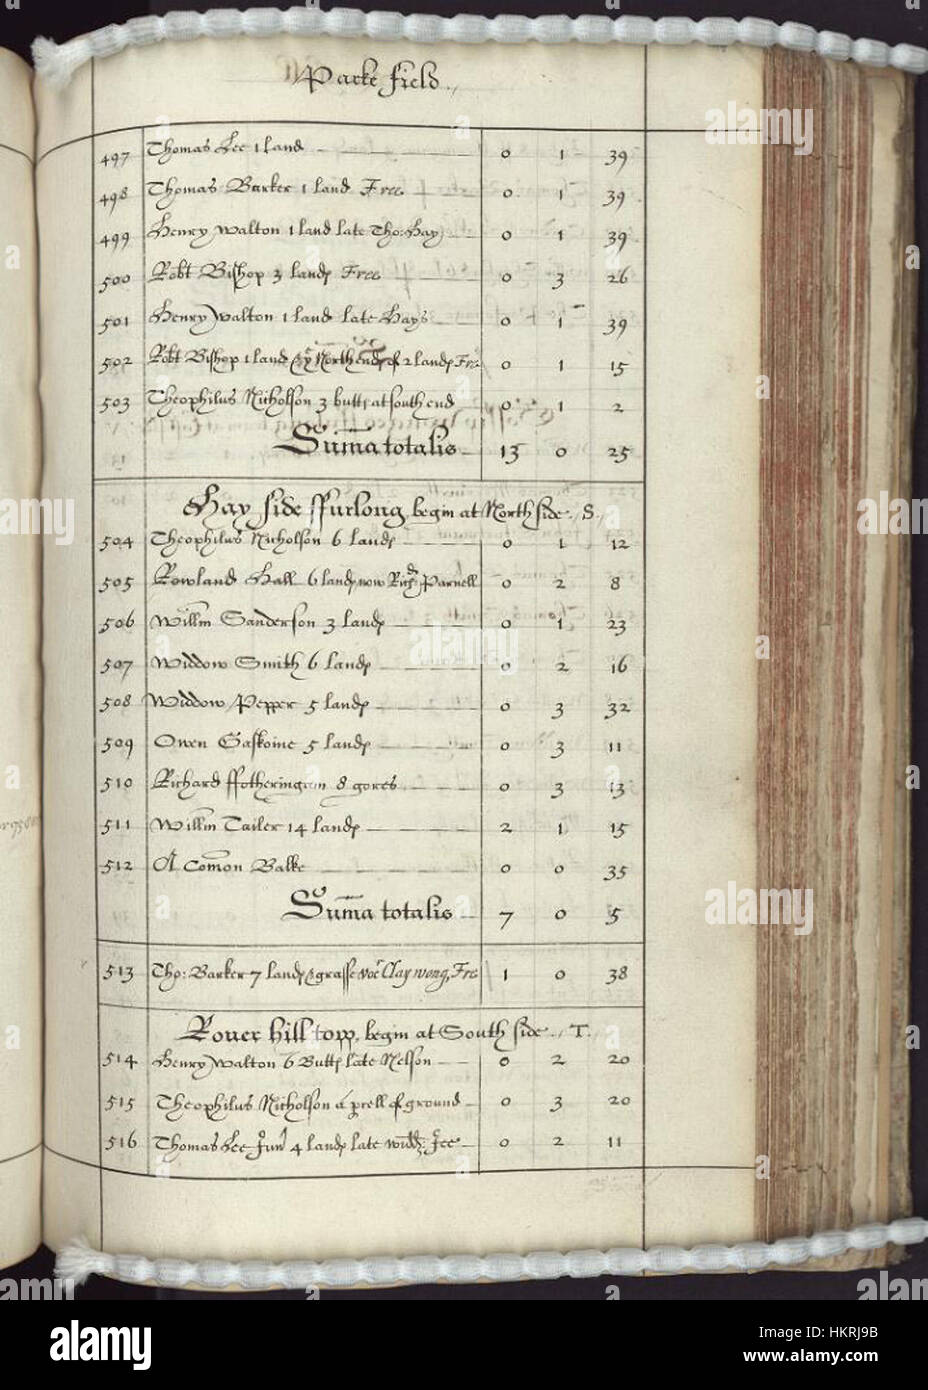 Parke field
497 Thomas Lee 1 land 0 1 39
498 Thomas Barker 1 land Free 0 1 39
499 Henry Walton 1 land late Tho: Hay 0 1 39
500 Robt Bishop 3 lands Free 0 3 26
501 Henry Walton 1 land late Hays 0 1 39
502 Robt Bishop 1 land & ye North ends of 2 lands Fre 0 1 15
503 Theophilus Nicholson 3 butts at south end 0 1 2
Suma totalis 13 0 25
Hay side ffurlong begin at North side. S.
504 Theophilus Nicholson 6 lands 0 1 12
505 Rowland Hall 6 lands now Richd Parnell 0 2 8
506 Willm Sanderson 3 lands 0 1 23
507 Widdow Smith 6 lands 0 2 16
508 Widdow Pepper 5 lands 0 3 32
509 Owen Gaskoine 5 lands 0 3 11
510 Richard ffotheringam 8 gores 0 3 13
511 Willm Tailer 14 lands 2 1 15
512 A Comon Balke 0 0 35
Suma totalis 7 0 5
513 Tho: Barker 7 lands & grasse voc Clay wong, Fre 1 0 38
Rover hill topp, begin at South side. T.
514 Henry Walton 6 Butts late Nelson 0 2 20
515 Theophilus Nicholson a pcell of ground 0 3 20
516 Thomas Lee Junr 4 lands late widd: Lee 0 2 11
alamy
alamy stock photo
HKRJ9B
www.alamy.com